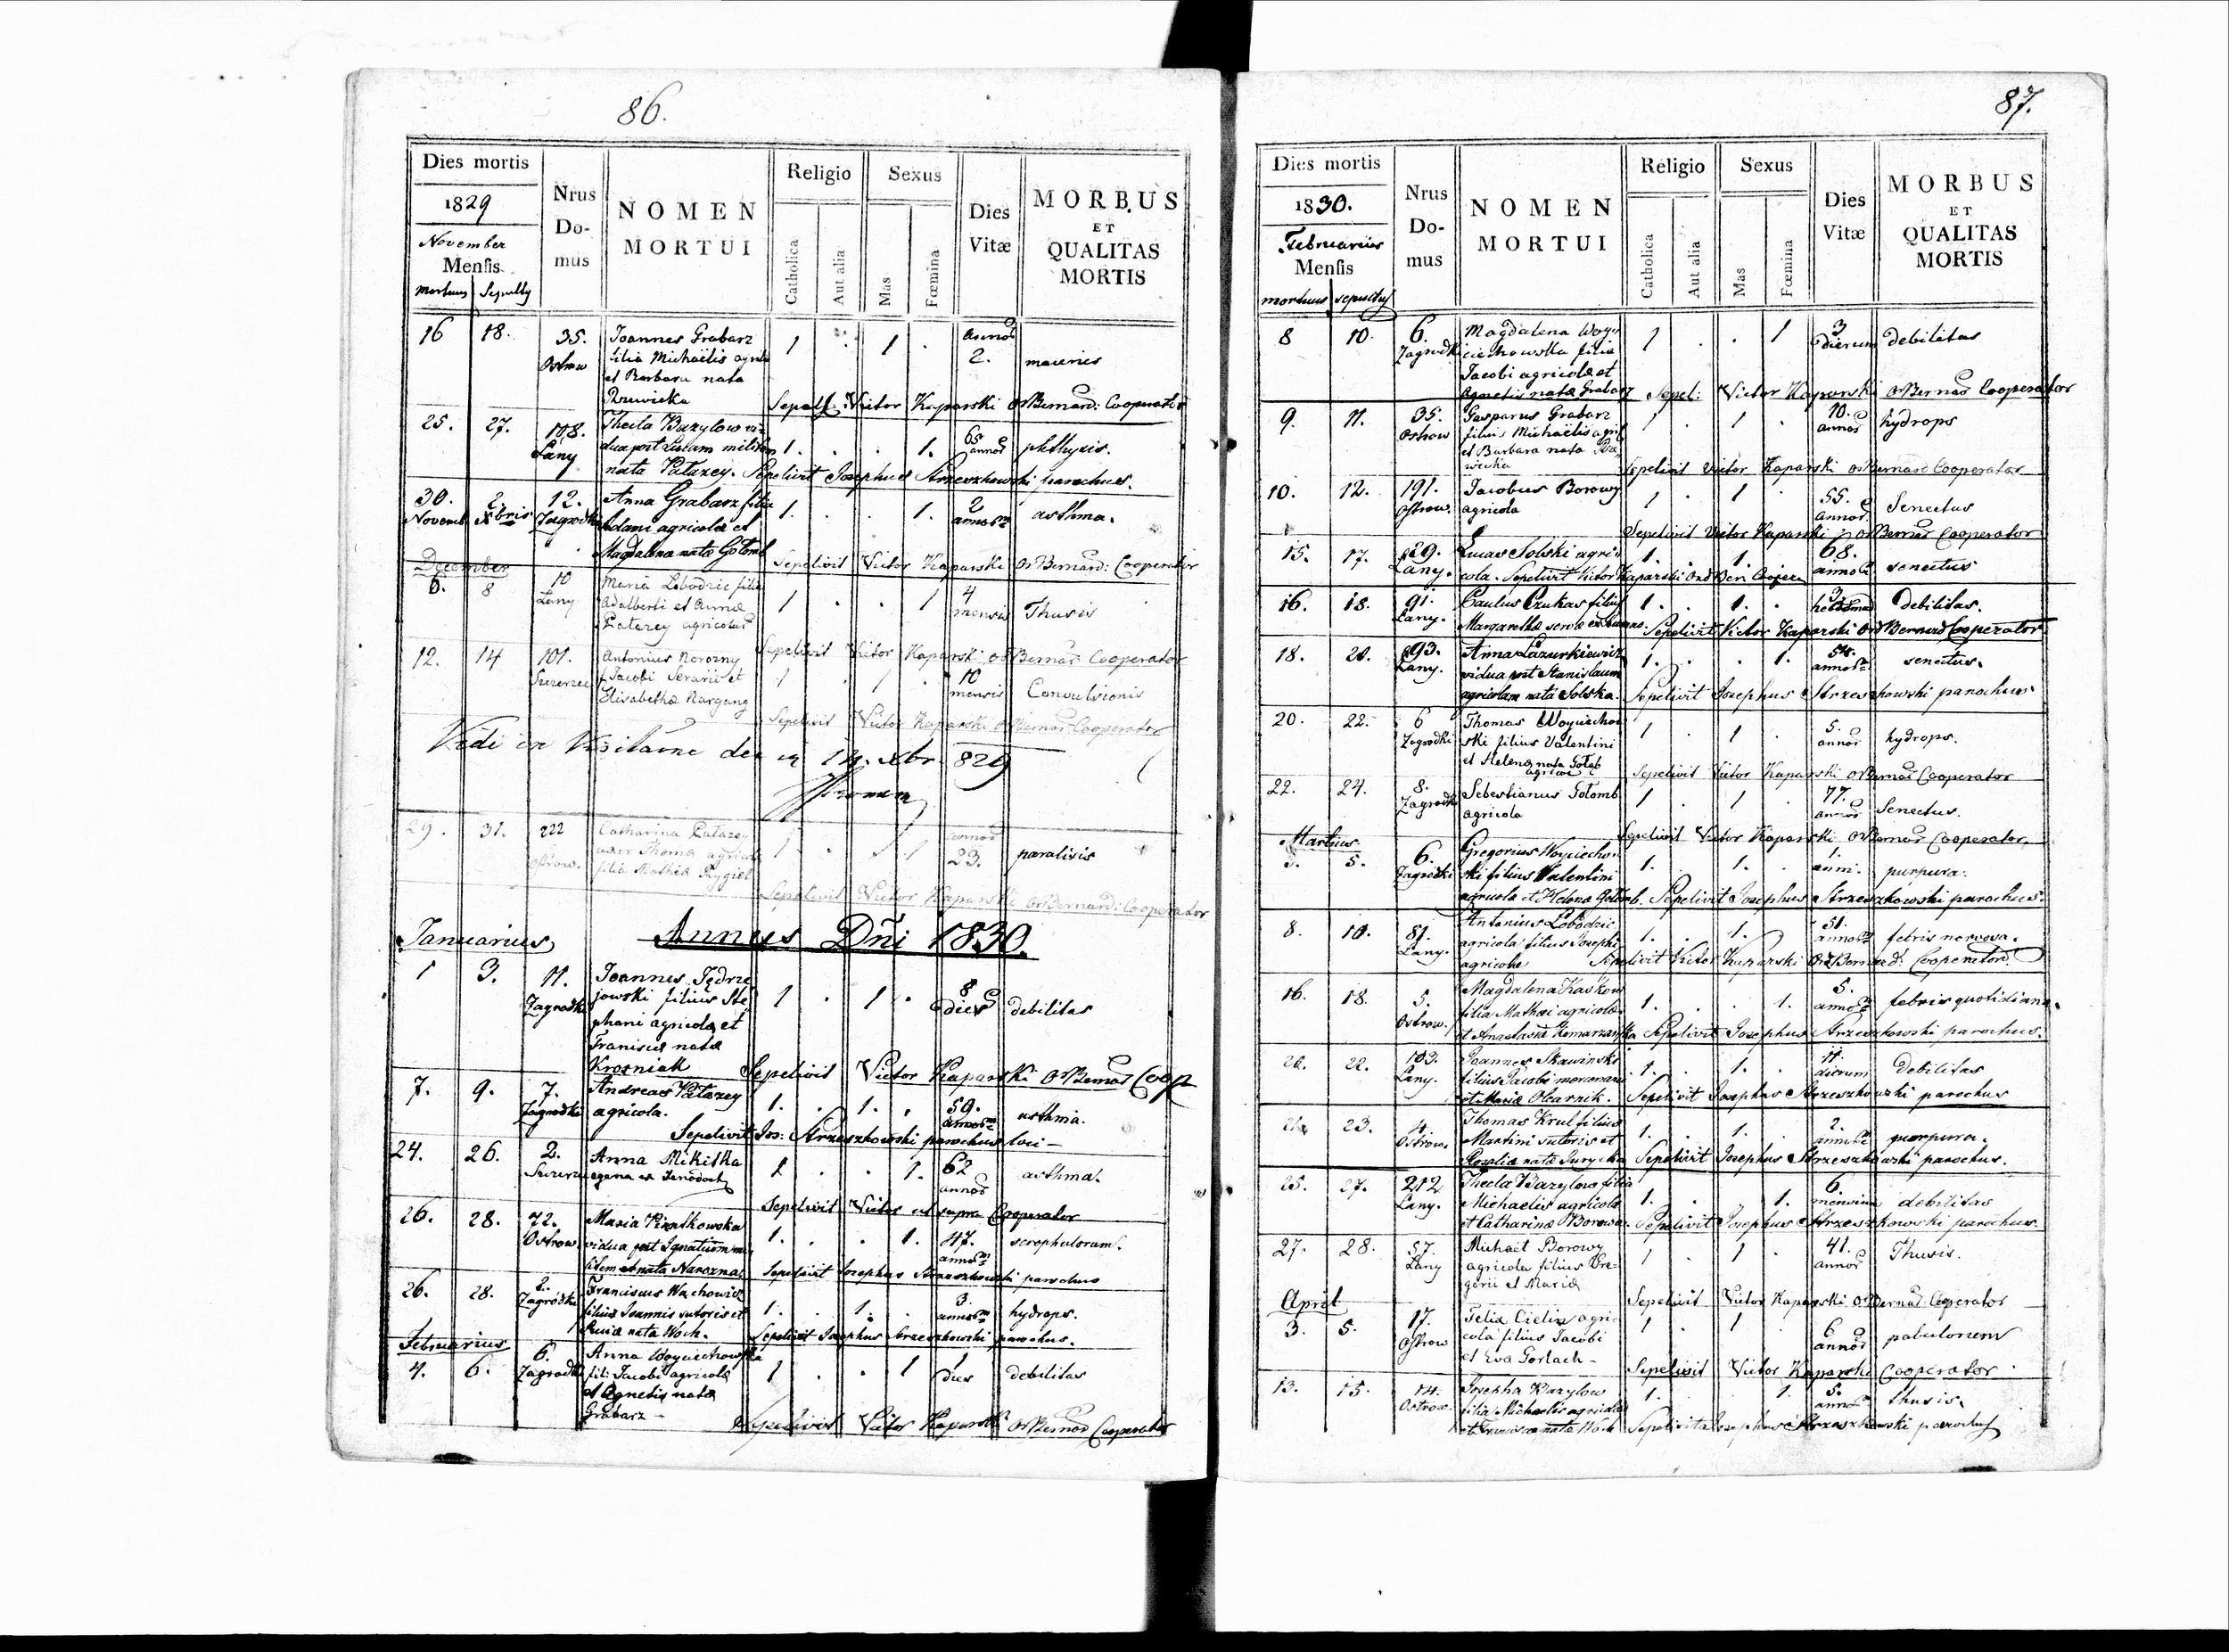 86.
Dies mortis
1829
November
Mensis
mortuus Sepultus
Nrus Do- mus
NOMEN MORTUI
Religio
Catholica
Aut alia
Sexus
Mas
Fœmina
Dies Vitæ
MORBUS ET QUALITAS MORTIS
16 18. 35. Joannes Grabarz 1 . 1 . annor
Ostrow filia Michaëlis 2. macries
et Barbara nata
Sepel: Victor Kaparski Or Bernard: Cooperator
25. 27. 108. Thecla Bazylow 1. . . 1. 65 phthysis.
Lany dua post Lucam annor
nata Patazey. Sepelivit Josephus Strzeszkowski parochus.
30. 2 12. Anna Grabarz filia 1. . . 1. 2 asthma.
Novemb Xbris Zagrodki Adami agricolæ et
Magdalena nata Gotomb Sepelivit Victor Kaparski Or Bernard: Cooperator
December
6. 8 10 Maria Lobodzic filia 1 . . 1 4 Thusis
Lany Adalberti et Anna mensis
Patazey agricolar
Sepelivit Victor Kaparski Or Bernar Cooperator
12. 14 101. Antonius Norozny 1 . 1 . 10 Convulsionis
Jacobi et mensis
Elisabetha Nargang
Sepelivit Victor Kaparski Or Bernar Cooperator
Vidi in 14. Xbr. 829
29. 31. 222 Catharina Patazey 1 . . 1 annor
Ostrow. uxor Thoma agricola 23. paralisis
filia Mathiæ Rygiel
Sepelivit Victor Kaparski Or Bernard: Cooperator
Annus Dñi 1830.
Januarius
1 3. 11. Joannes Jędrze 1 . 1 . 8 debilitas
Zagrodki jowski filius Ste dier
phani agricola et
nata
Krozniak Sepelivit Victor Kaparski Or Bernar Coop
7. 9. 7. Andreas Patazey 1. . 1. . 59. asthma.
Zagrodki agricola.
Sepelivit Jos: Strzeszkowski parochus loci
24. 26. 2. Anna Mikitka 1 . . 1. 62 asthma.
egena annor
Sepelivit Victor ut supra Cooperator
26. 28. 72. Maria 1. . . 1. 47. scrophulorum.
Ostrow. vidua post Ignatium
nata Narozna Sepelivit Josephus Strzeszkowski parochus
26. 28. 2. Franciscus Wachowicz 1. . 1. . 3. hydrops.
Zagródki filius Joannis sutoris et
nata Woch. Sepelivit Josephus Strzeszkowski parochus.
Februarius
4. 6. 6. Anna Woyciechowska 1 . . 1 1 debilitas
Zagrodki fil: Jacobi agricolæ dies
et Agnetis nata
Grabarz Sepelivit Victor Kaparski Or Bernar Cooperator
87.
Dies mortis
1830.
Februarius
Mensis
mortuus sepultus
Nrus Do- mus
NOMEN MORTUI
Religio
Catholica
Aut alia
Sexus
Mas
Fœmina
Dies Vitæ
MORBUS ET QUALITAS MORTIS
8 10. 6. Magdalena Woy 1 . . 1 3 debilitas
Zagrodki ciechowska filia dierum
Jacobi agricolæ et
Agnetis nata Grabarz Sepel: Victor Kaparski Or Bernar Cooperator
9. 11. 35. Gasparus Grabarz 1 . 1 . 10. hydrops
Ostrow filius Michaëlis agric annor
et Barbara nata
Sepelivit Victor Kaparski Or Bernard Cooperator
10. 12. 191. Jacobus Borowy 1 . 1 . 55. Senectus
Ostrow. agricola annor
Sepelivit Victor Kaparski Or Bernar Cooperator
15. 17. 229. Lucas Solski agri 1. . 1. . 68. senectus
Lany. cola. Sepelivit Victor Kaparski Ord Ber: Coopera
16. 18. 91. Paulus Czukas filius 1. . 1. . 3. debilitas.
Lany. Margarethæ servæ Sepelivit Victor Kaparski Ord Bernard Cooperator
18. 20. 93. Anna Lazurkiewicz 1. . . 1. 54. senectus.
Lany. vidua post Stanislaum
agricolam nata Solska. Sepelivit Josephus Strzeszkowski parochus
20. 22. 6 Thomas Woyciechow 1 . 1 . 5. hydrops.
Zagrodki ski filius Valentini annor
et Helena nata Gotąb
agricol Sepelivit Victor Kaparski Or Bernar Cooperator
22. 24. 8. Sebestianus Gotomb 1 . 1 . 77. Senectus.
Zagrodki agricola annor
Sepelivit Victor Kaparski Or Bernar Cooperator
Martius.
3. 5. 6. Gregorius Woyciechow 1. . 1. . 1. purpura.
Zagrodki ski filius Valentini anni.
agricola et Helena Gotomb. Sepelivit Josephus Strzeszkowski parochus.
8. 10. 81. Antonius Lobodzic 1. . 1. 51. febris nervosa.
Lany. agricola filius Josephi
agricolæ Sepelivit Victor Kaparski Ord Bernard: Cooperator
16. 18. 5. Magdalena Kaskow 1. . . 1. 5. febris quotidiana.
Ostrow. filia Mathæi agricolæ
Sepelivit Josephus Strzeszkowski parochus.
20. 22. 103. Joannes Skawinski 1. . 1. . 11. Debilitas
Lany. filius Jacobi dierum
et Maria Olearnik. Sepelivit Josephus Strzeszkowski parochus
23. 4. Thomas Krul filius 1. . 1. . 2. purpura.
Ostrow. Martini sutoris et
Rosalia nata Sepelivit Josephus Strzeszkowski parochus.
25. 27. 212 Thecla Bazylow filia 1. . . 1. 6. debilitas
Lany. Michaelis agricolæ mensium
et Catharina Borowa. Sepelivit Josephus Strzeszkowski parochus.
27. 28. 57. Michael Borowy 1 . 1 . 41. Thusis.
Lany agricola filius Gre= annor
gorii et Maria
Sepelivit Victor Kaparski Or Bernar Cooperator
April
3. 5. 17. Felix Cielin agri 1 . 1 . 6 pabulonem
Ostrow cola filius Jacobi annor
et Eva Gorlach Sepelivit Victor Kaparski Cooperator
13. 15. 14. Josepha Bazylow 1. . . 1. 5. thusis.
Ostrow. filia Michaelis agricolæ
nata Woch Sepelivit Josephus Strzeszkowski parochus